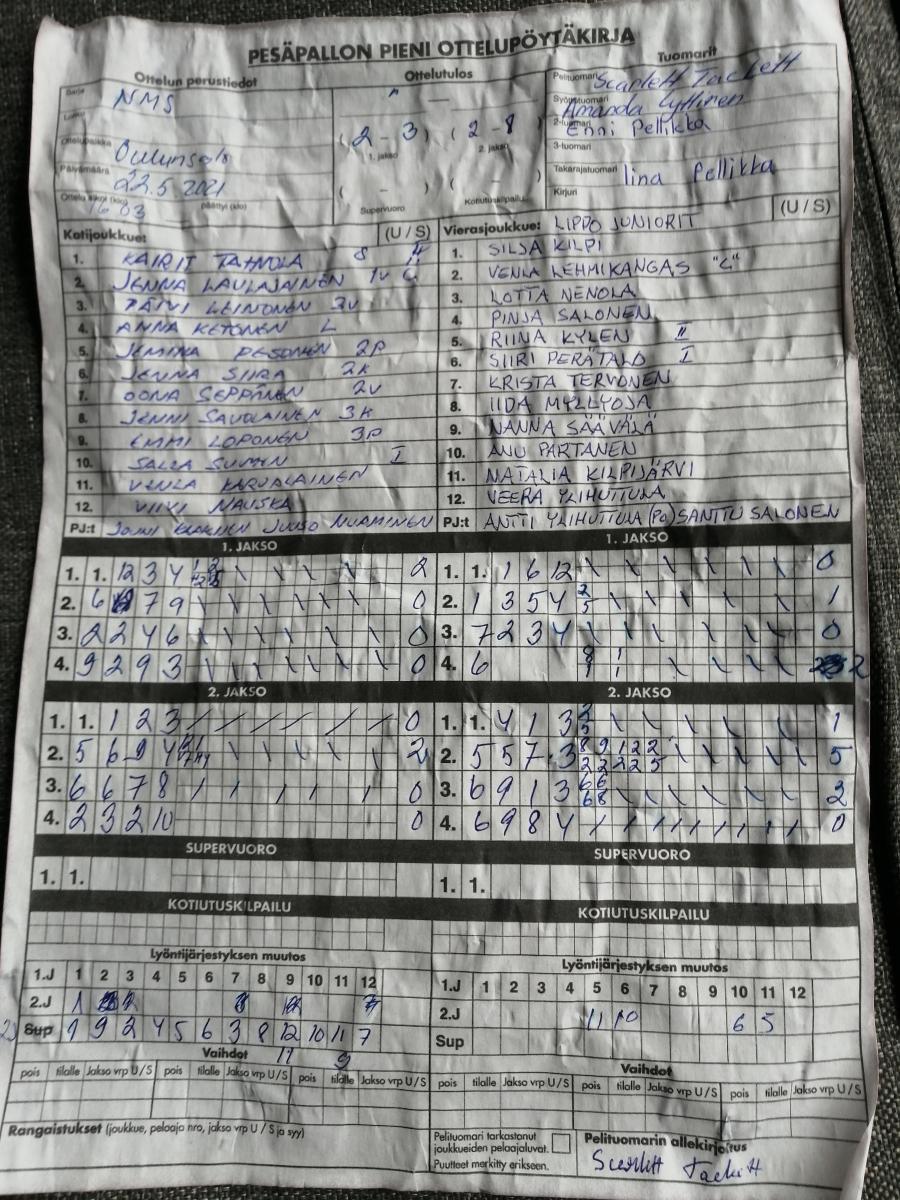 PESÄPALLON PIENI OTTELUPÖYTÄKIRJA
Ottelun perustiedot
Sarja NMS
Ottelupaikka Oulunsalo
Päivämäärä 22.5 2021
16 03 päättyi (klo)
Ottelutulos
(2 - 3) (2 - 8)
1. jakso 2. jakso
( - ) ( - )
Supervuoro Kotiutuskilpailu
Tuomarit
Pelituomari Scarlett Tackett
Syöttötuomari Amanda Lyttinen
2-tuomari Enni Pellikka
3-tuomari
Takarajatuomari Iina Pellikka
Kirjuri
Kotijoukkue: (U / S)
1. KAIRIT TAHVOLA 8 II
2. JENNA LAULAJAINEN 1V
3. PÄIVI LEINONEN 3V
4. ANNA KETONEN L
5. JEMINA PESONEN 2P
6. JENNA SIIRA 2K
7. OONA SEPPÄNEN 2V
8. JENNI SAVOLAINEN 3K
9. EMMI LOPONEN 3P
10. SALLA I
11. VENLA KARJALAINEN
12. VIIVI NAUSKA
PJ:t JUUSO NURMINEN
Vierasjoukkue: LIPPO JUNIORIT (U / S)
1. SILJA KILPI
2. VENLA LEHMIKANGAS "C"
3. LOTTA NENOLA
4. PINJA SALONEN
5. RIINA KYLEN II
6. SIIRI PERÄTALO I
7. KRISTA TERVONEN
8. IIDA MYLLYOJA
9. NANNA SÄÄVÄLÄ
10. ANU PARTANEN
11. NATALIA KILPIJÄRVI
12. VEERA YLIHUTTULA
PJ:t ANTTI YLIHUTTULA (PO) SANTTU SALONEN
1. JAKSO
1. 1. 12 3 4 2
2. 6 7 9 0
3. 2 2 4 6 0
4. 9 2 9 3 0
1. JAKSO
1. 1. 1 6 12 0
2. 1 3 5 4 2 5 1
3. 7 2 3 4 0
4. 6 2
2. JAKSO
1. 1. 1 2 3 0
2. 5 6 9 4 2
3. 6 6 7 8 0
4. 2 3 2 10 0
2. JAKSO
1. 1. 4 1 3 1
2. 5 5 7 3 8 9 12 2 5
2 2 2 2 5
3. 6 9 1 3 6 6 2
6 8
4. 6 9 8 4 0
SUPERVUORO
1. 1.
SUPERVUORO
1. 1.
KOTIUTUSKILPAILU
KOTIUTUSKILPAILU
Lyöntijärjestyksen muutos
1.J 1 2 3 4 5 6 7 8 9 10 11 12
2.J 1
Sup 1 9 2 4 5 6 3 8 12 10 11 7
Vaihdot 11 9
pois tilalle Jakso vrp U/S pois tilalle Jakso vrp U/S pois tilalle Jakso vrp U/S
Rangaistukset (joukkue, pelaaja nro, jakso vrp U / S ja syy)
Lyöntijärjestyksen muutos
1.J 1 2 3 4 5 6 7 8 9 10 11 12
2.J 11 10 6 5
Sup
Vaihdot
pois tilalle Jakso vrp U/S pois tilalle Jakso vrp U/S pois tilalle Jakso vrp U/S
Pelituomari tarkastanut joukkueiden pelaajaluvat.
Puutteet merkitty erikseen.
Pelituomarin allekirjoitus
Scarlett Tackett